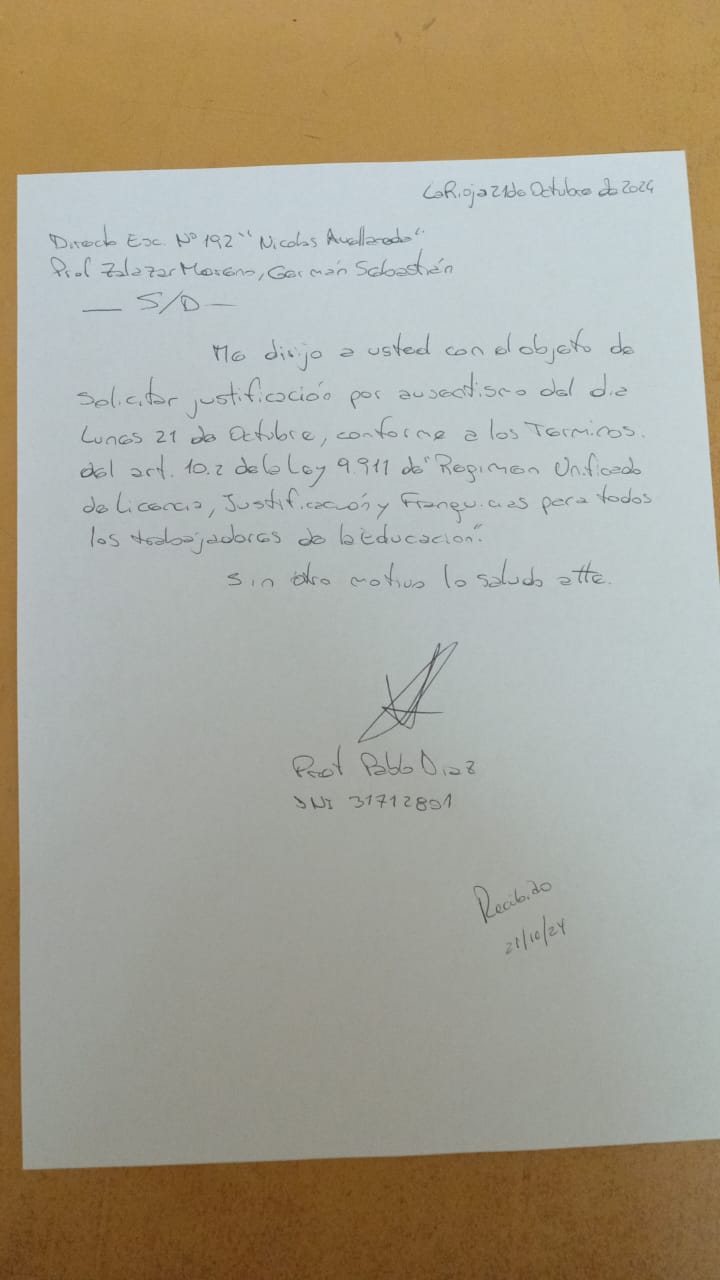 La Rioja 21 de Octubre de 2024
Directo Esc. Nº 192 "Nicolas Avellaneda"
Prof Zalazar Moreno, Germán Sebastián
— S/D —
Me dirijo a usted con el objeto de
solicitar justificación por ausentismo del dia
Lunes 21 de Octubre, conforme a los Terminos.
del art. 10.2 de la Ley 9.911 de "Regimen Unificado
de Licencia, Justificación y Franquicias para todos
los trabajadores de la Educacion".
Sin otro motivo lo saludo atte.
Prof Pablo Diaz
DNI 31712891
Recibido
21/10/24